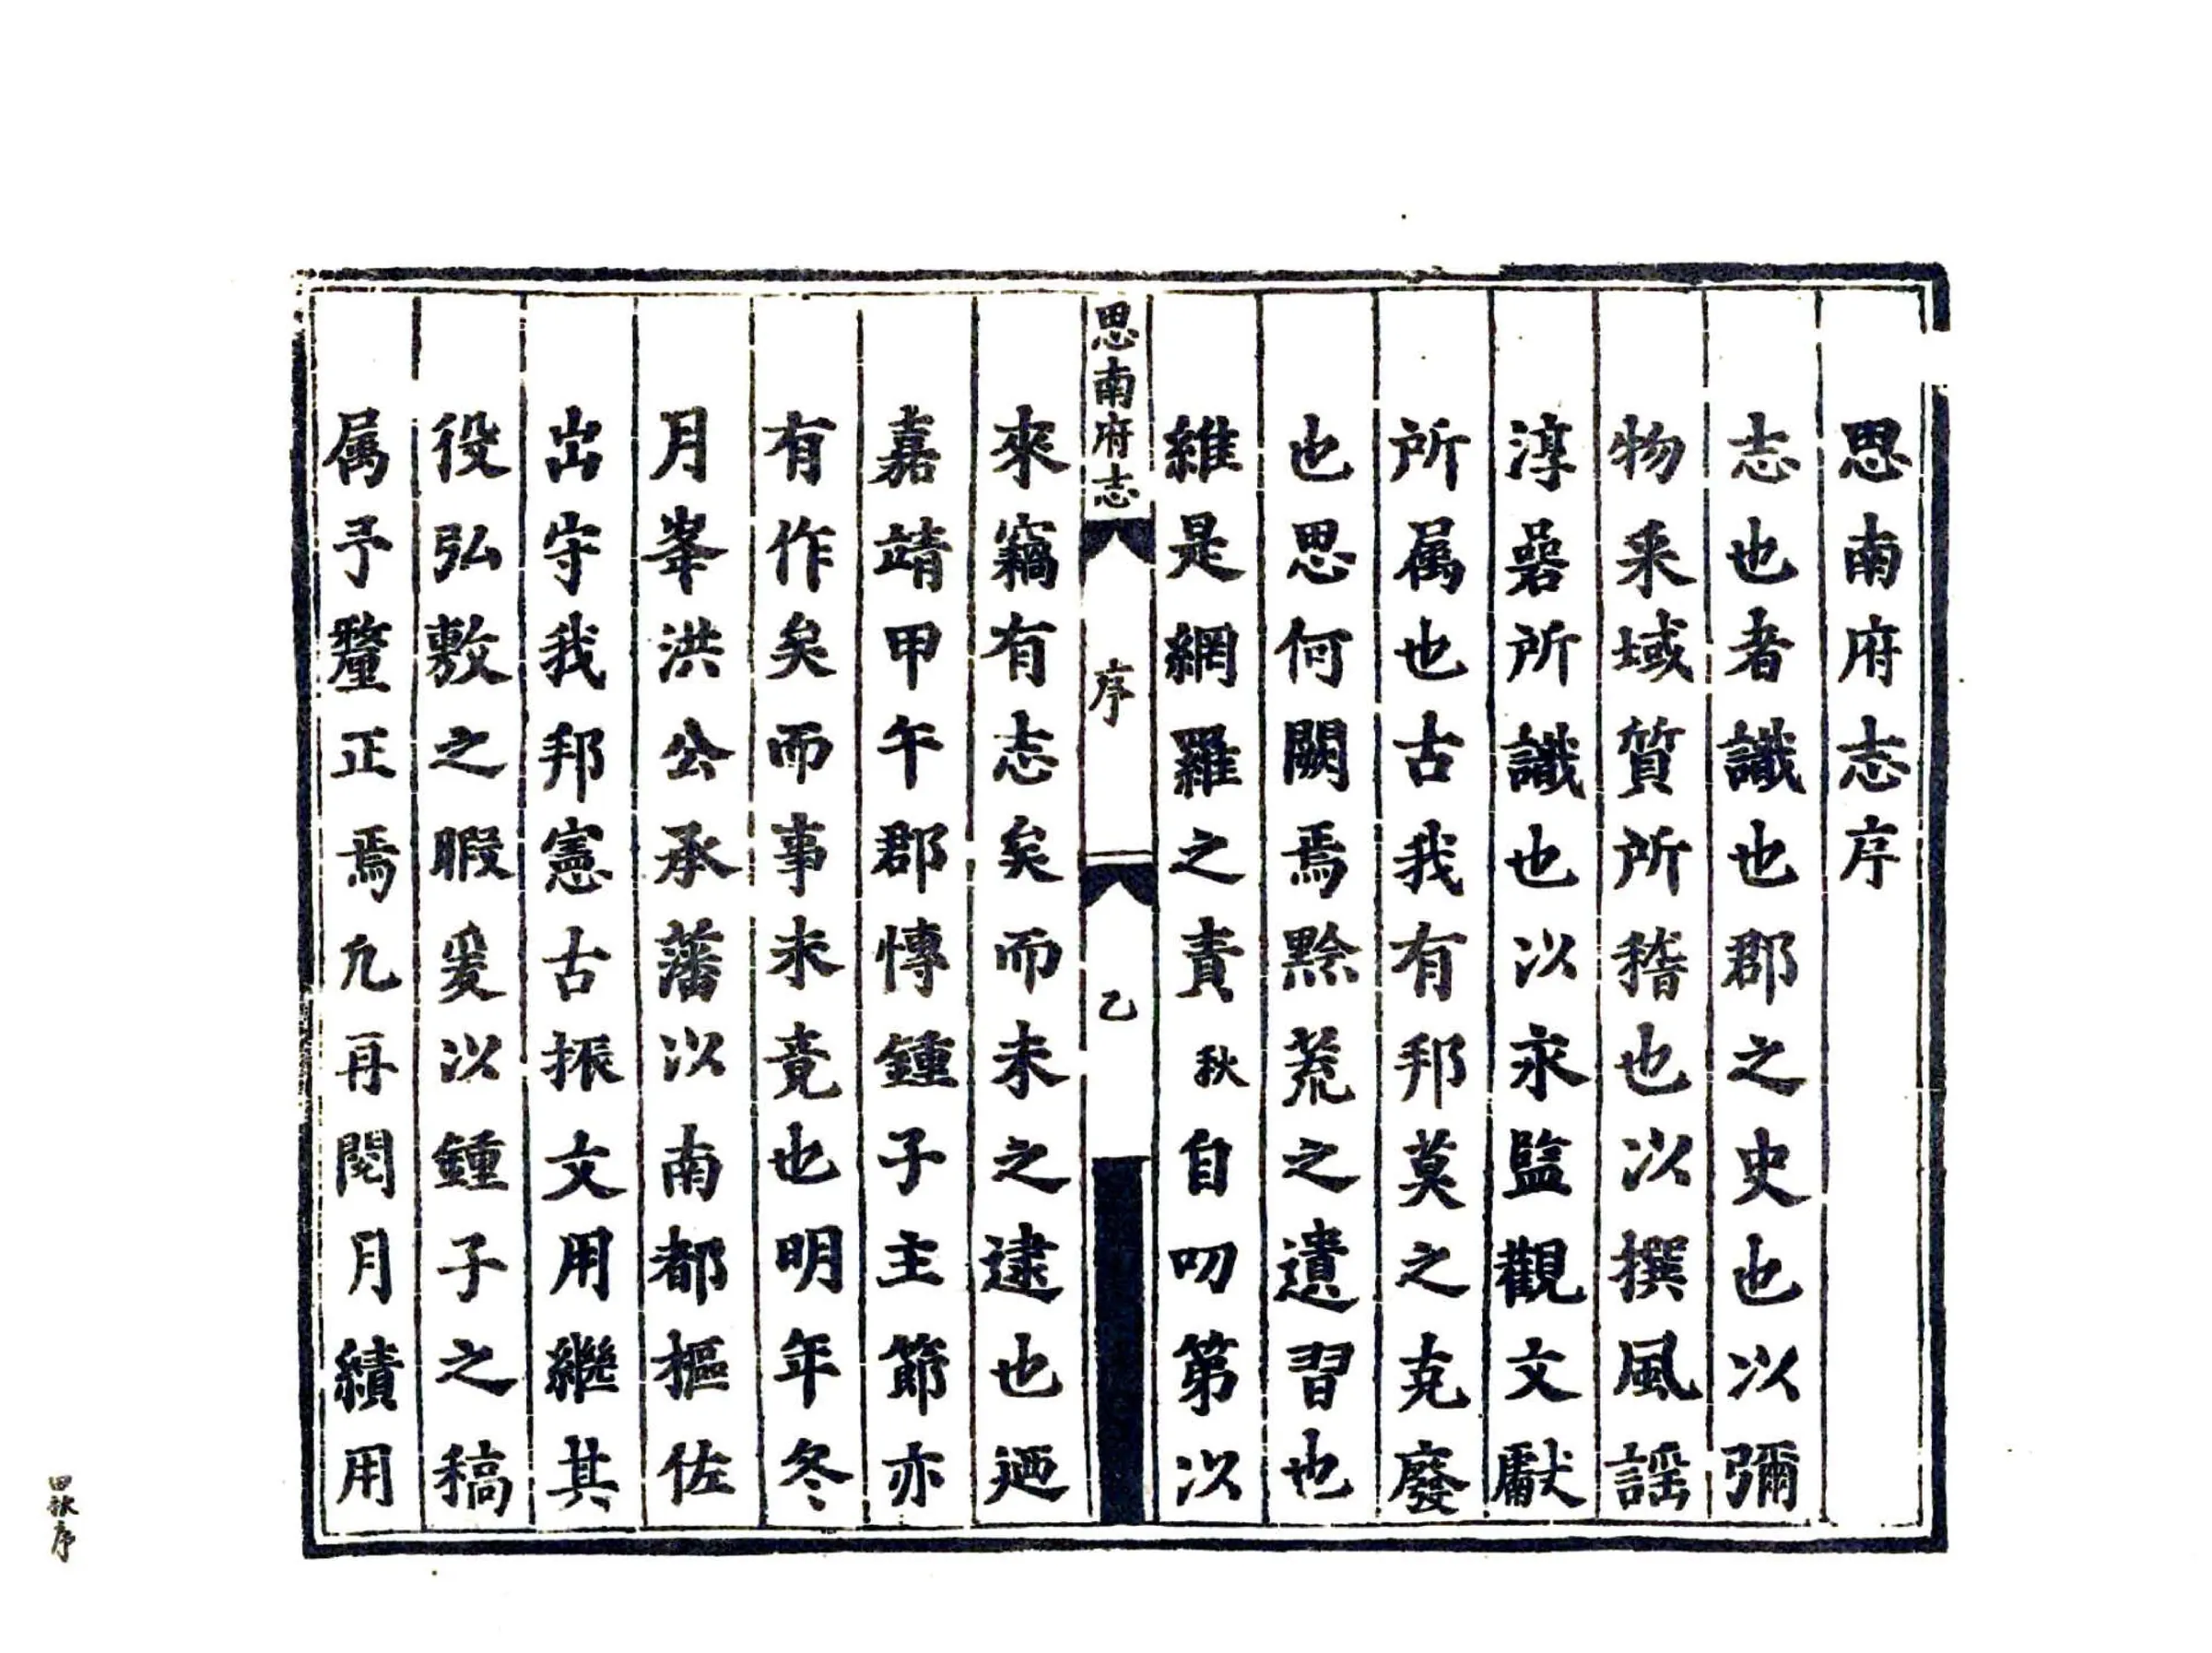 思南府志序
志也者識也郡之史也以彌
物釆域質所稽也以撰風謡
淳礐所識也以永監觀文獻
所属也古我有邦莫之克廢
也思何闕焉黔荒之遺習也
維是網羅之責秋自叨第以
思南府志 序 乙
來竊有志矣而未之逮也迺
嘉靖甲午郡慱鍾子主節亦
有作矣而事未竟也明年冬
月峯洪公承藩以南都樞佐
出守我邦憲古振文用繼其
役弘敷之暇爰以鍾子之稿
属予釐正焉凢再閱月績用
田秋序